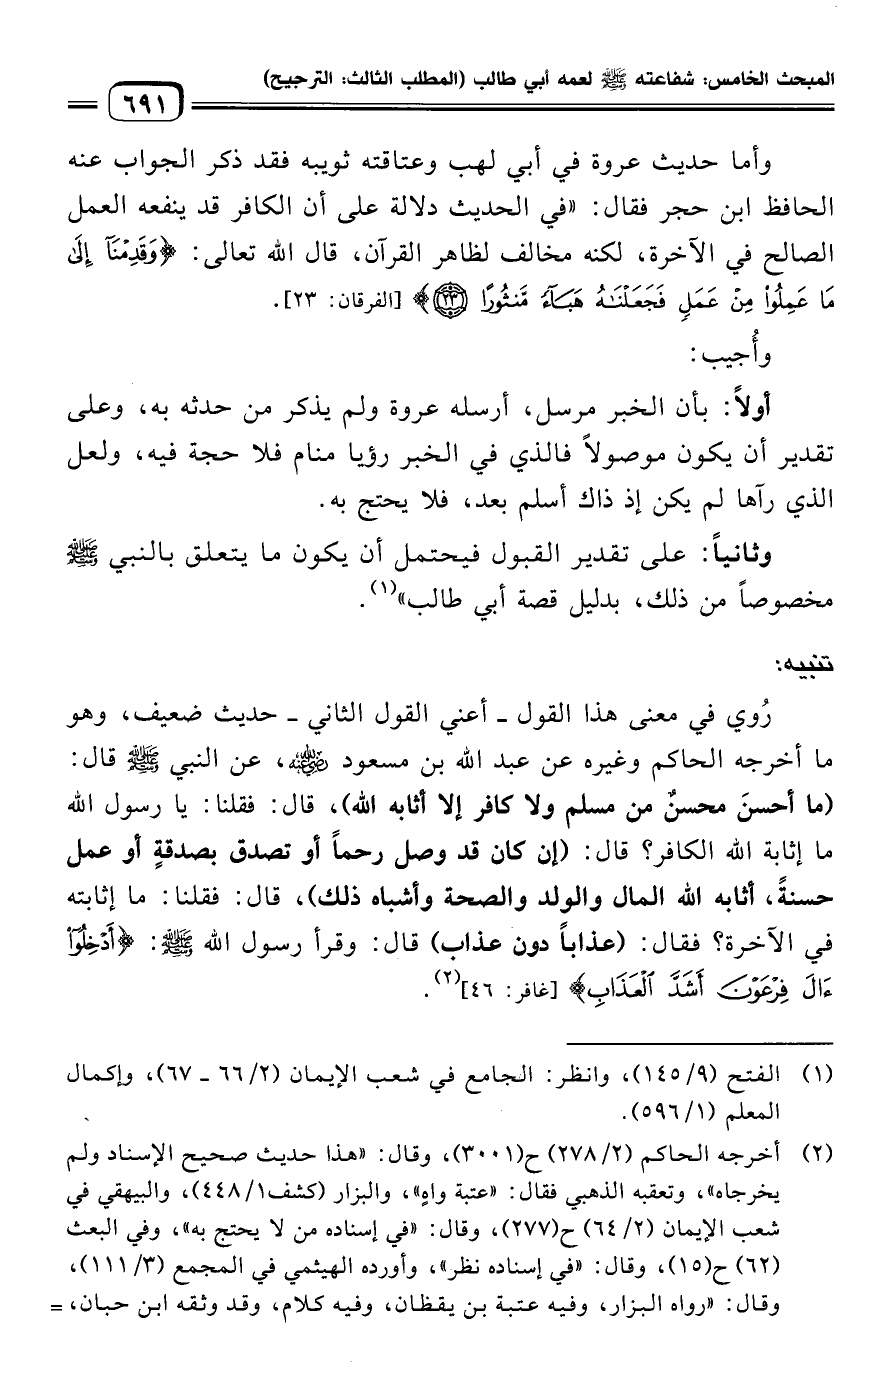 المبحث الخامس: شفاعته ﷺ لعمه أبي طالب (المطلب الثالث: الترجيح)
٦٩١
وأما حديث عروة في أبي لهب وعتاقته ثويبه فقد ذكر الجواب عنه
الحافظ ابن حجر فقال: «في الحديث دلالة على أن الكافر قد ينفعه العمل
الصالح في الآخرة، لكنه مخالف لظاهر القرآن، قال الله تعالى: ﴿وَقَدِمْنَآ إِلَىٰ
مَا عَمِلُواْ مِنْ عَمَلٖ فَجَعَلْنَٰهُ هَبَآءٗ مَّنثُورًا ٢٣﴾ [الفرقان: ٢٣].
وأُجيب:
أولاً: بأن الخبر مرسل، أرسله عروة ولم يذكر من حدثه به، وعلى
تقدير أن يكون موصولاً فالذي في الخبر رؤيا منام فلا حجة فيه، ولعل
الذي رآها لم يكن إذ ذاك أسلم بعد، فلا يحتج به.
وثانياً: على تقدير القبول فيحتمل أن يكون ما يتعلق بالنبي ﷺ
مخصوصاً من ذلك، بدليل قصة أبي طالب»(١).
تنبيه:
رُوي في معنى هذا القول ـ أعني القول الثاني ـ حديث ضعيف، وهو
ما أخرجه الحاكم وغيره عن عبد الله بن مسعود رضي الله عنه، عن النبي ﷺ قال:
(ما أحسنَ محسنٌ من مسلم ولا كافر إلا أثابه الله)، قال: فقلنا: يا رسول الله
ما إثابة الله الكافر؟ قال: (إن كان قد وصل رحماً أو تصدق بصدقةٍ أو عمل
حسنةً، أثابه الله المال والولد والصحة وأشباه ذلك)، قال: فقلنا: ما إثابته
في الآخرة؟ فقال: (عذاباً دون عذاب) قال: وقرأ رسول الله ﷺ: ﴿أَدْخِلُوٓاْ
ءَالَ فِرْعَوْنَ أَشَدَّ ٱلْعَذَابِ﴾ [غافر: ٤٦](٢).
(١) الفتح (٩/ ١٤٥)، وانظر: الجامع في شعب الإيمان (٢/ ٦٦ ـ ٦٧)، وإكمال
المعلم (١/ ٥٩٦).
(٢) أخرجه الحاكم (٢/ ٢٧٨) ح(٣٠٠١)، وقال: «هذا حديث صحيح الإسناد ولم
يخرجاه»، وتعقبه الذهبي فقال: «عتبة واهٍ»، والبزار (كشف١/ ٤٤٨)، والبيهقي في
شعب الإيمان (٢/ ٦٤) ح(٢٧٧)، وقال: «في إسناده من لا يحتج به»، وفي البعث
(٦٢) ح(١٥)، وقال: «في إسناده نظر»، وأورده الهيثمي في المجمع (٣/ ١١١)،
وقال: «رواه البزار، وفيه عتبة بن يقظان، وفيه كلام، وقد وثقه ابن حبان، =